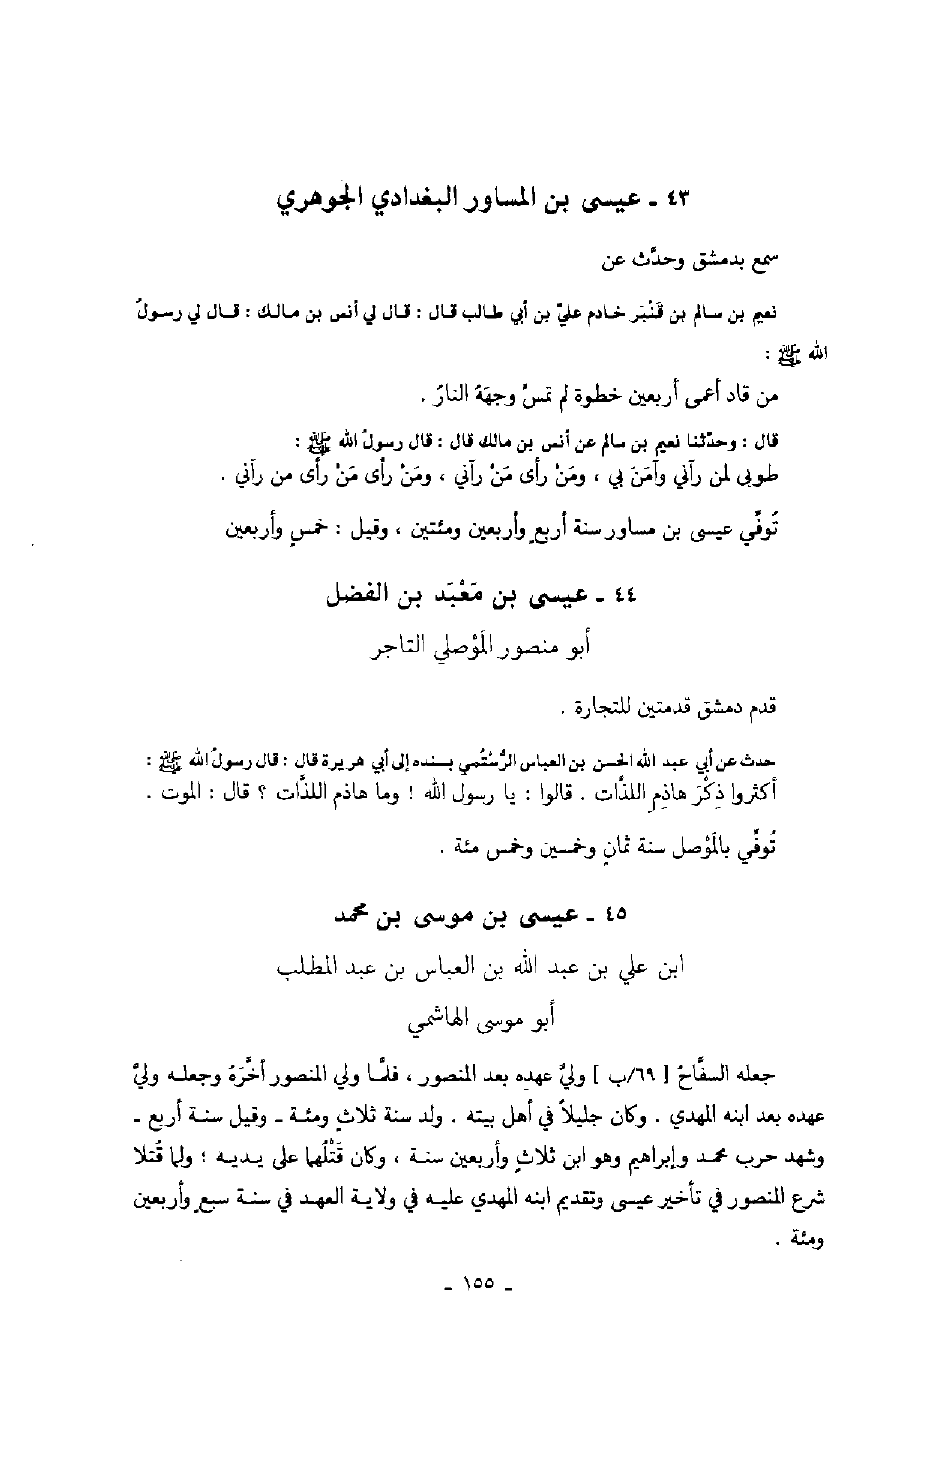 ٤٣ ـ عيسى بن المساور البغدادي الجوهري
سمع بدمشق وحدَّث عن
نعيم بن سالم بن قَنْبَر خادم عليّ بن أبي طالب قال : قال لي أنس بن مالك : قال لي رسولُ
الله ﷺ :
من قاد أعمى أربعين خطوة لم تمسَّ وجهَهُ النارُ .
قال : وحدّثنا نعيم بن سالم عن أنس بن مالك قال : قال رسولُ الله ﷺ :
طوبى لمن رآني وآمَنَ بي ، ومَنْ رأى مَنْ رآني ، ومَنْ رأى مَنْ رأى من رآني .
تُوفِّي عيسى بن مساور سنة أربعٍ وأربعين ومئتين ، وقيل : خمسٍ وأربعين
٤٤ ـ عيسى بن مَعْبَد بن الفضل
أبو منصور المَوْصلي التاجر
قدم دمشق قدمتين للتجارة .
حدث عن أبي عبد الله الحسن بن العباس الرُّسْتُمي بسنده إلى أبي هريرة قال : قال رسولُ الله ﷺ :
أكثروا ذِكْرَ هاذِمِ اللذَّات . قالوا : يا رسول الله ! وما هاذم اللذَّات ؟ قال : الموت .
تُوفِّي بالمَوْصل سنة ثمانٍ وخمسين وخمس مئة .
٤٥ ـ عيسى بن موسى بن محمد
ابن علي بن عبد الله بن العباس بن عبد المطلب
أبو موسى الهاشمي
جعله السفَّاحُ [ ٦٩/ب ] وليَّ عهده بعد المنصور ، فلمَّا ولي المنصور أخَّرَهُ وجعله وليَّ
عهده بعد ابنه المهدي . وكان جليلاً في أهل بيته . ولد سنة ثلاثٍ ومئة ـ وقيل سنة أربع ـ
وشهد حرب محمد وإبراهيم وهو ابن ثلاثٍ وأربعين سنة ، وكان قَتْلُهما على يديه ؛ ولما قُتلا
شرع المنصور في تأخير عيسى وتقديم ابنه المهدي عليه في ولاية العهد في سنة سبعٍ وأربعين
ومئة .
ـ ١٥٥ ـ